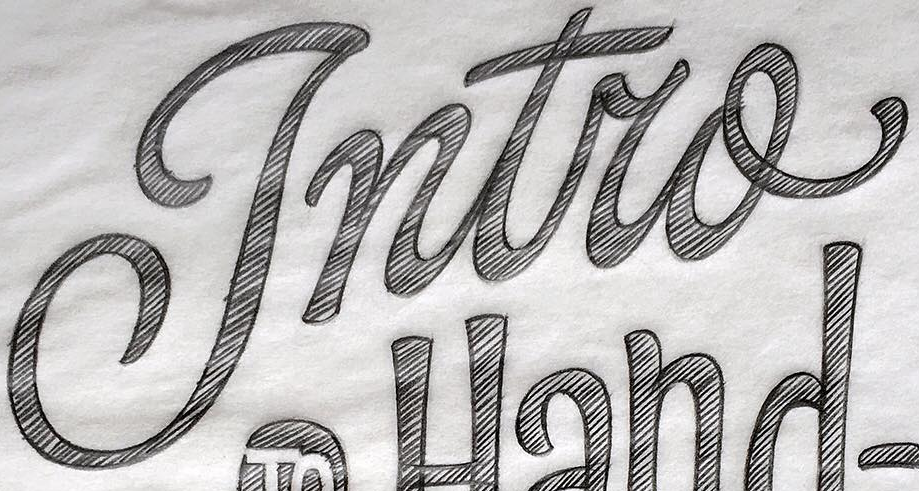 Intro
To Hand-